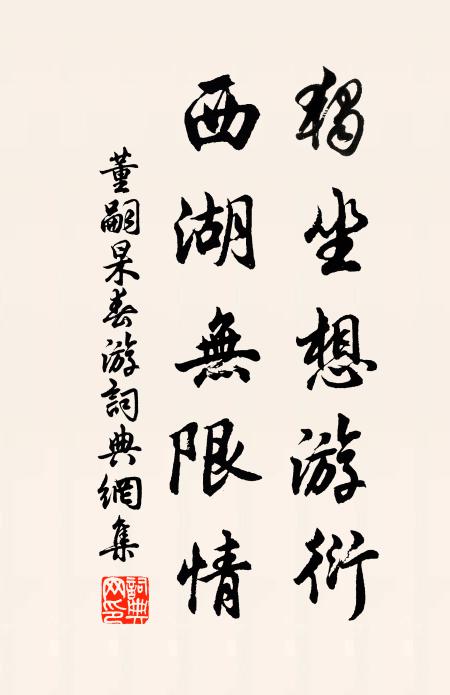 獨坐想游衍
西湖無限情
董嗣杲春游詞典網集
詞典網印